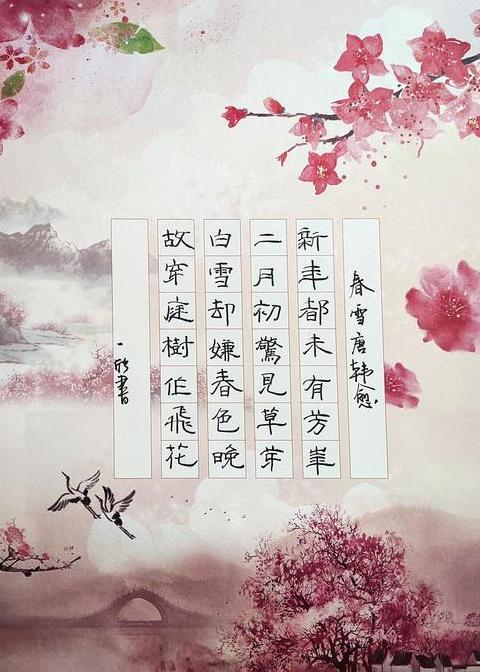 春雪唐韩愈
新年都未有芳華
二月初驚見草芽
白雪却嫌春色晚
故穿庭樹作飛花
一欣書